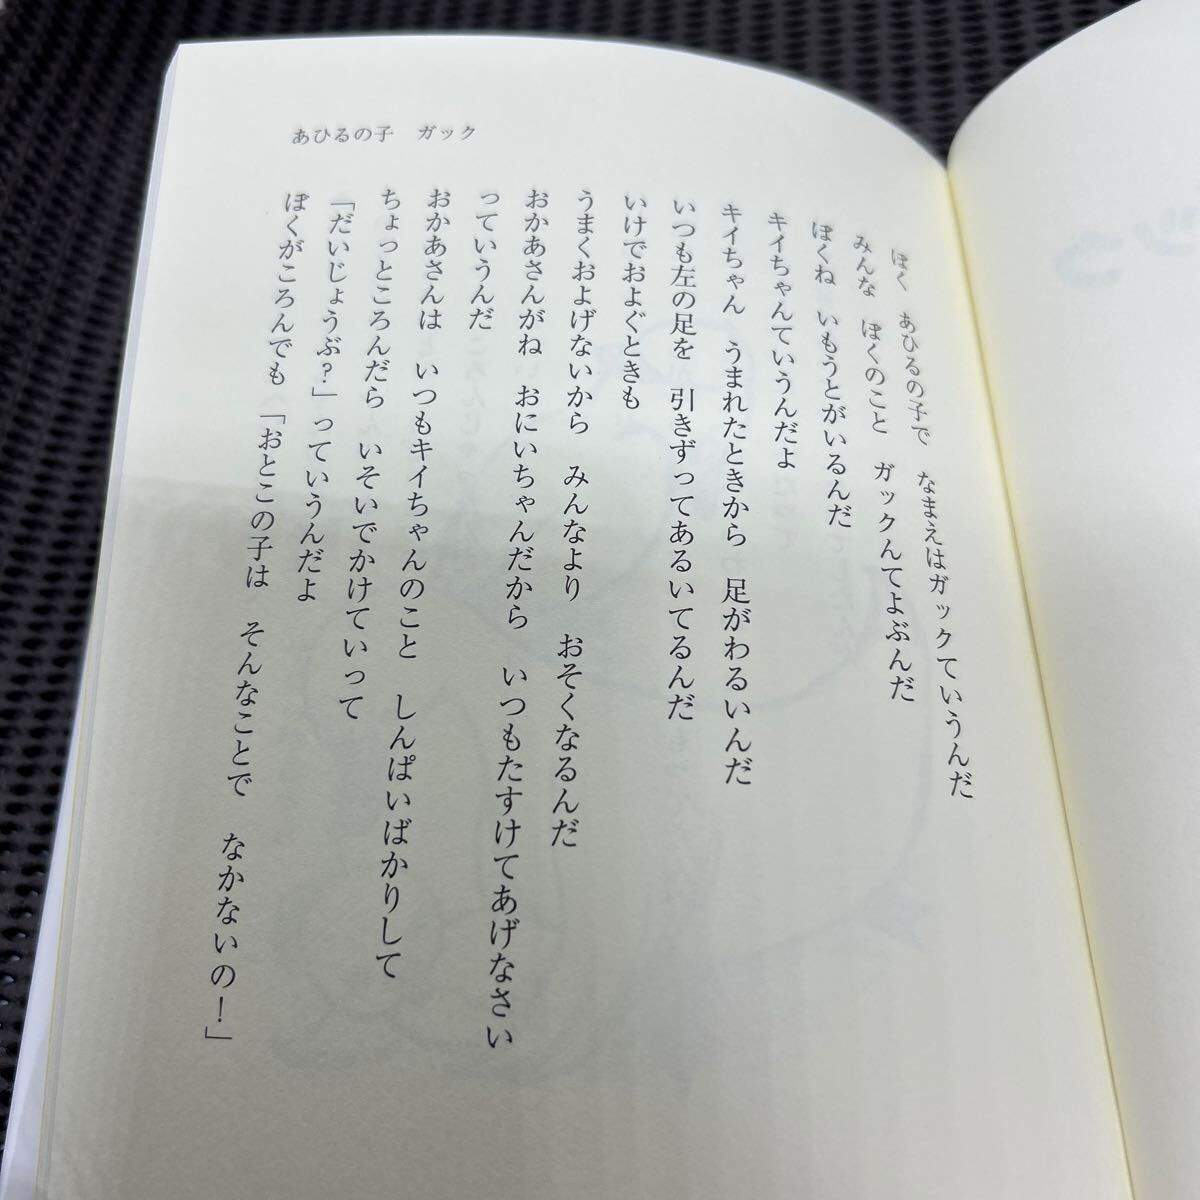 あひるの子　ガック
ぼく　あひるの子で　なまえはガックていうんだ
みんな　ぼくのこと　ガックんてよぶんだ
ぼくね　いもうとがいるんだ
キイちゃんていうんだよ
キイちゃん　うまれたときから　足がわるいんだ
いつも左の足を　引きずってあるいてるんだ
いけでおよぐときも
うまくおよげないから　みんなより　おそくなるんだ
おかあさんがね　おにいちゃんだから　いつもたすけてあげなさい
っていうんだ
おかあさんは　いつもキイちゃんのこと　しんぱいばかりして
ちょっところんだら　いそいでかけていって
「だいじょうぶ？」っていうんだよ
ぼくがころんでも　「おとこの子は　そんなことで　なかないの！」
ック